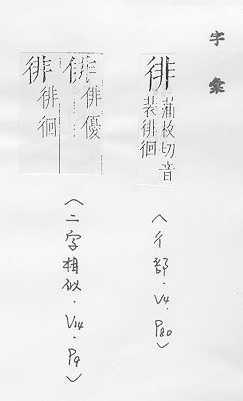 字彙
徘
蒲枚切音
裴徘徊
（彳部．V4．P80）
俳
俳優
徘
徘徊
（二字相似．V14．P9）